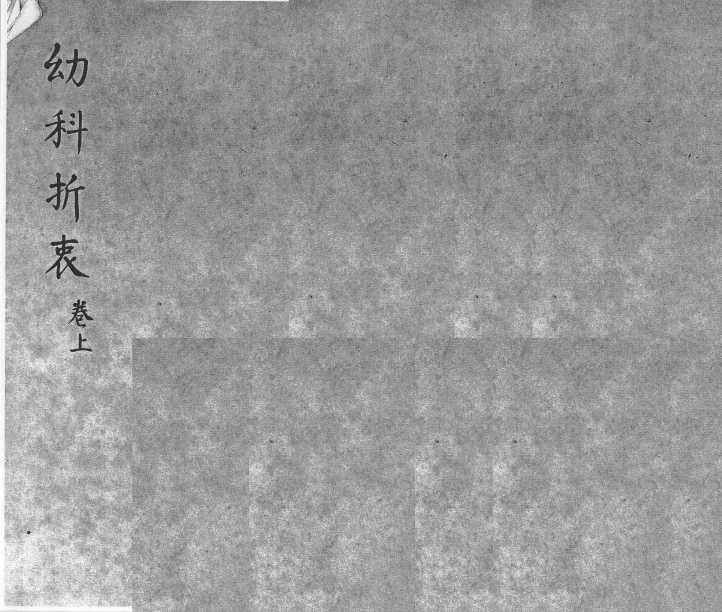 幼科折衷 卷上